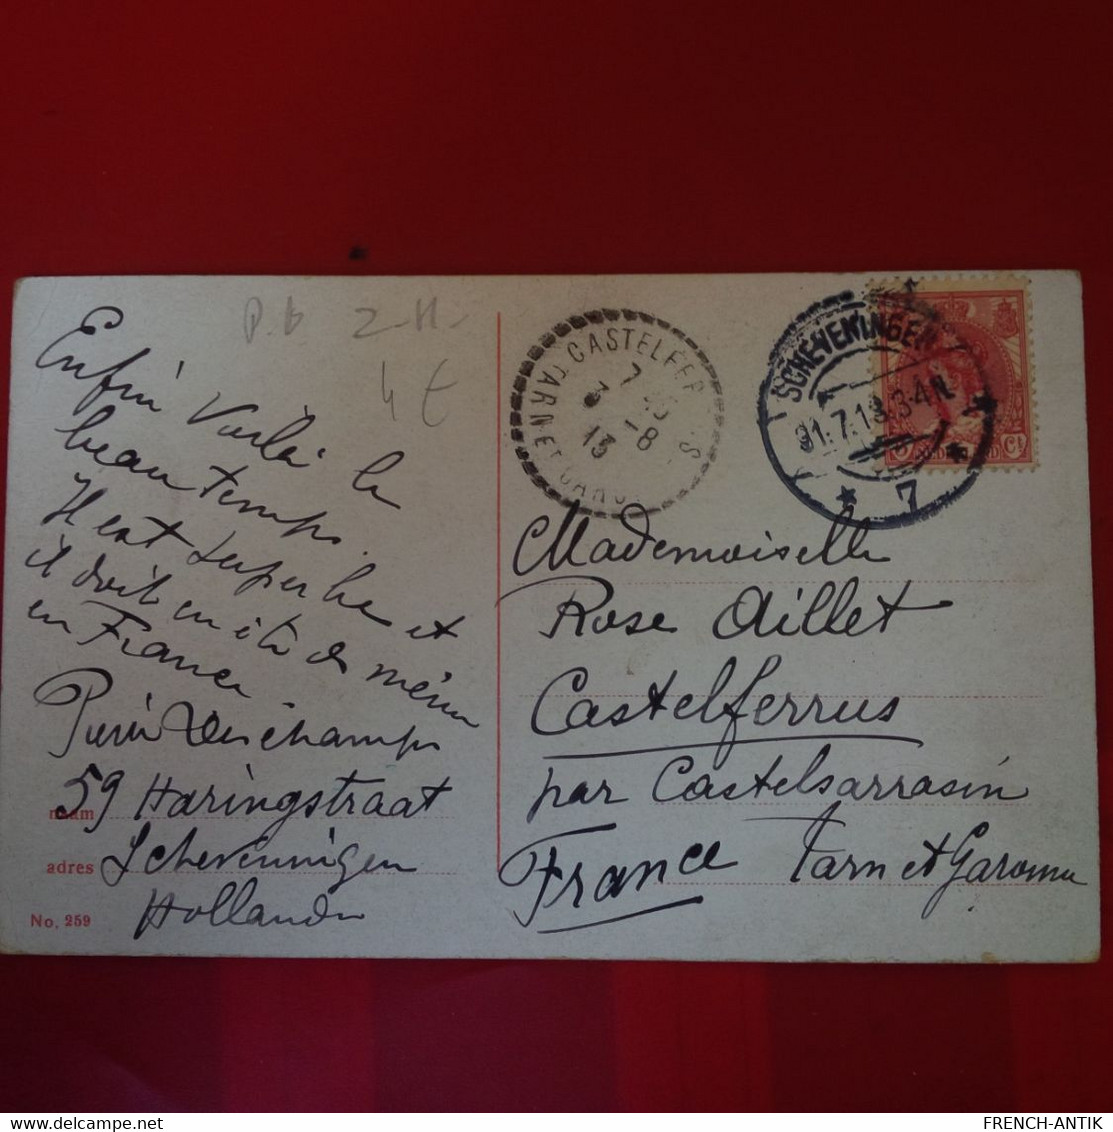 P.b 2-11-
4 €
Enfin voilà le
beau temps.
Il est superbe et
il doit en être de même
en France
Deschamps
59 Haringstraat
Scheveningen
Hollande
naam
adres
No. 259
CASTELFER S
TARN ET GARO
7
13 -8
SCHEVENINGEN
31.7.13.3-4N
* 7 *
5 Ct
Mademoiselle
Rose Aillet
Castelferrus
par Castelsarrasin
France Tarn et Garonne
FRENCH-ANTIK